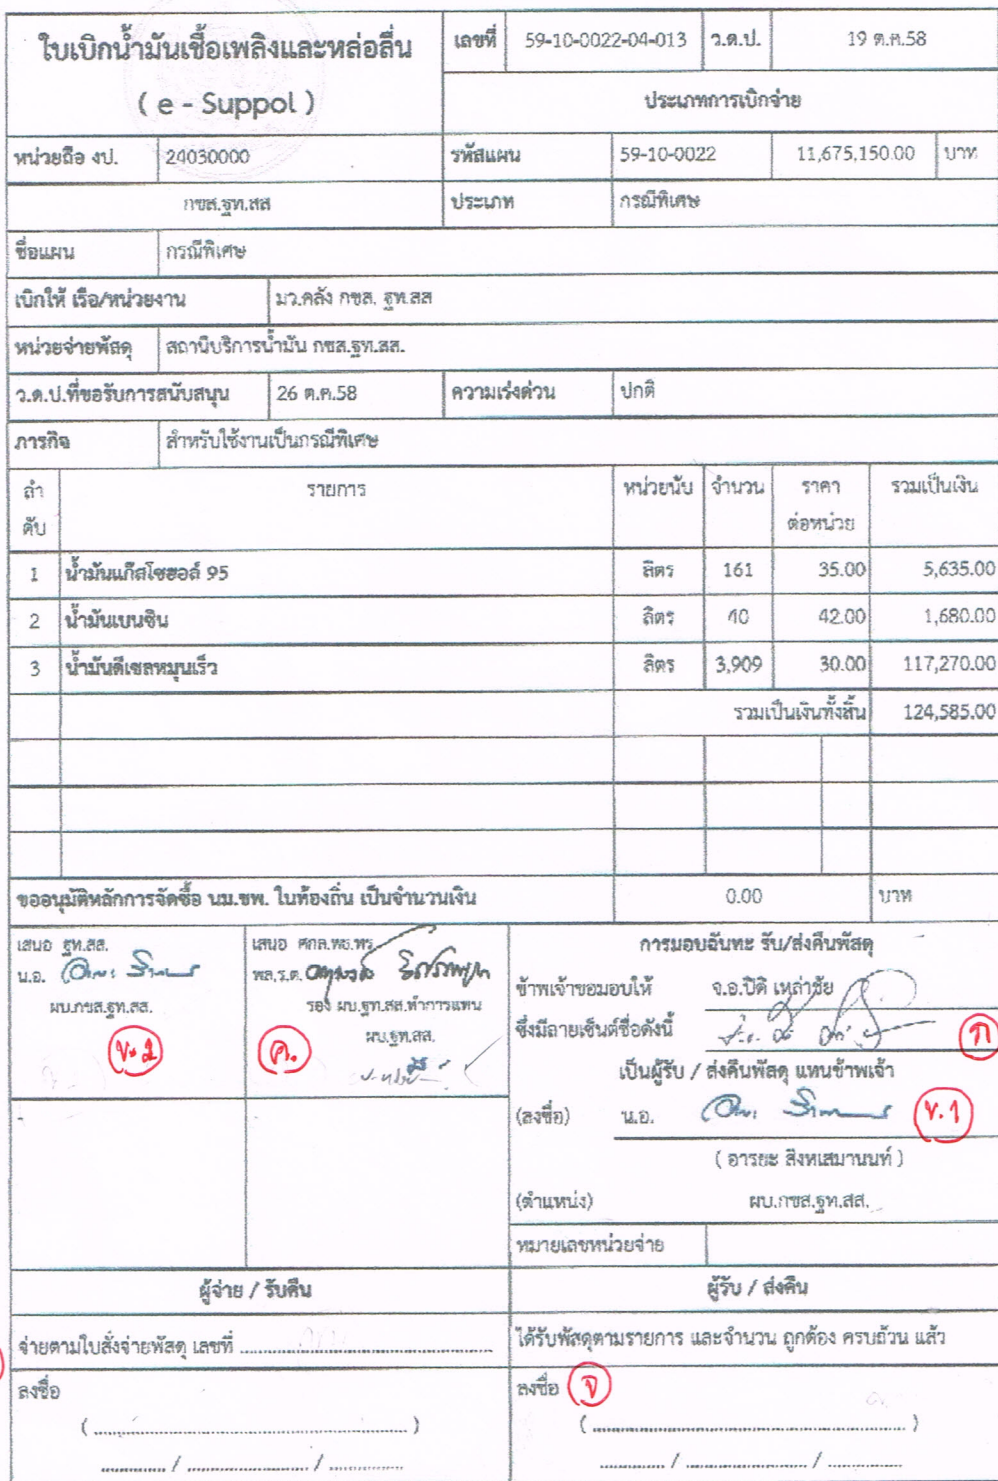 ใบเบิกน้ำมันเชื้อเพลิงและหล่อลื่น
( e - Suppol )
เลขที่ 59-10-0022-04-013 ว.ด.ป. 19 ต.ค.58
ประเภทการเบิกจ่าย
หน่วยถือ งป. 24030000 รหัสแผน 59-10-0022 11,675,150.00 บาท
กขส.ฐท.สส ประเภท กรณีพิเศษ
ชื่อแผน กรณีพิเศษ
เบิกให้ เรือ/หน่วยงาน มว.คลัง กขส. ฐท.สส
หน่วยจ่ายพัสดุ สถานีบริการน้ำมัน กขส.ฐท.สส.
ว.ด.ป.ที่ขอรับการสนับสนุน 26 ต.ค.58 ความเร่งด่วน ปกติ
ภารกิจ สำหรับใช้งานเป็นกรณีพิเศษ
ลำดับ รายการ หน่วยนับ จำนวน ราคาต่อหน่วย รวมเป็นเงิน
1 น้ำมันแก๊สโซฮอล์ 95 ลิตร 161 35.00 5,635.00
2 น้ำมันเบนซิน ลิตร 40 42.00 1,680.00
3 น้ำมันดีเซลหมุนเร็ว ลิตร 3,909 30.00 117,270.00
รวมเป็นเงินทั้งสิ้น 124,585.00
ขออนุมัติหลักการจัดซื้อ นม.ชพ. ในท้องถิ่น เป็นจำนวนเงิน 0.00 บาท
เสนอ ฐท.สส.
น.อ.
ผบ.กขส.ฐท.สส.
ข.2
เสนอ ศกล.พธ.ทร.
พล.ร.ต.
รอง ผบ.ฐท.สส.ทำการแทน
ผบ.ฐท.สส.
ค.
การมอบฉันทะ รับ/ส่งคืนพัสดุ
ข้าพเจ้าขอมอบให้ จ.อ.ปิติ เหล่าชัย
ซึ่งมีลายเซ็นต์ชื่อดังนี้
ก
เป็นผู้รับ / ส่งคืนพัสดุ แทนข้าพเจ้า
(ลงชื่อ) น.อ.
ข.1
( อารยะ สิงหเสมานนท์ )
(ตำแหน่ง) ผบ.กขส.ฐท.สส.
หมายเลขหน่วยจ่าย
ผู้จ่าย / รับคืน
จ่ายตามใบสั่งจ่ายพัสดุ เลขที่ ........................................
ลงชื่อ
( ........................................ )
............ / ........................ / ............
ผู้รับ / ส่งคืน
ได้รับพัสดุตามรายการ และจำนวน ถูกต้อง ครบถ้วน แล้ว
ลงชื่อ จ
( ........................................ )
............ / ........................ / ............